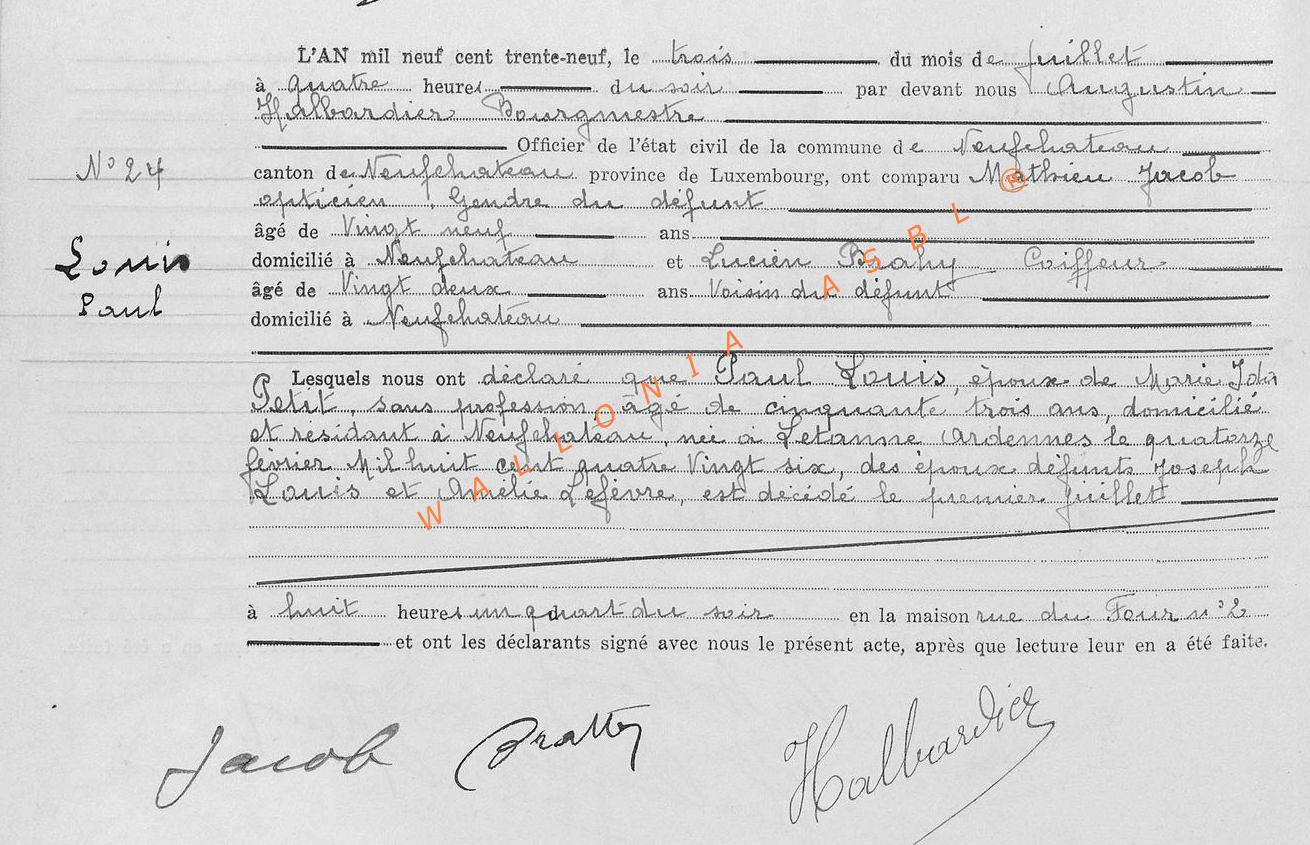 L'AN mil neuf cent trente-neuf, le trois du mois de juillet
à quatre heures du soir par devant nous Augustin
Halbardier Bourgmestre
Officier de l'état civil de la commune de Neufchateau
N° 24
canton de Neufchateau province de Luxembourg, ont comparu Mathieu Jacob
opticien Gendre du défunt
âgé de Vingt neuf ans
Louis
domicilié à Neufchateau et Lucien Coiffeur
âgé de Vingt deux ans Voisin du défunt
Paul
domicilié à Neufchateau
Lesquels nous ont déclaré que Paul Louis, époux de Marie Ida
Petit, sans profession, âgé de cinquante trois ans, domicilié
et résidant à Neufchateau, né à Letanne Ardennes le quatorze
février Mil huit cent quatre Vingt six, des époux défunts Joseph
Louis et Amélie Lefèvre, est décédé le premier juillet
à huit heures un quart du soir en la maison rue du Four n°2
et ont les déclarants signé avec nous le présent acte, après que lecture leur en a été faite.
Jacob Halbardier
WALLONIA ASBL ®